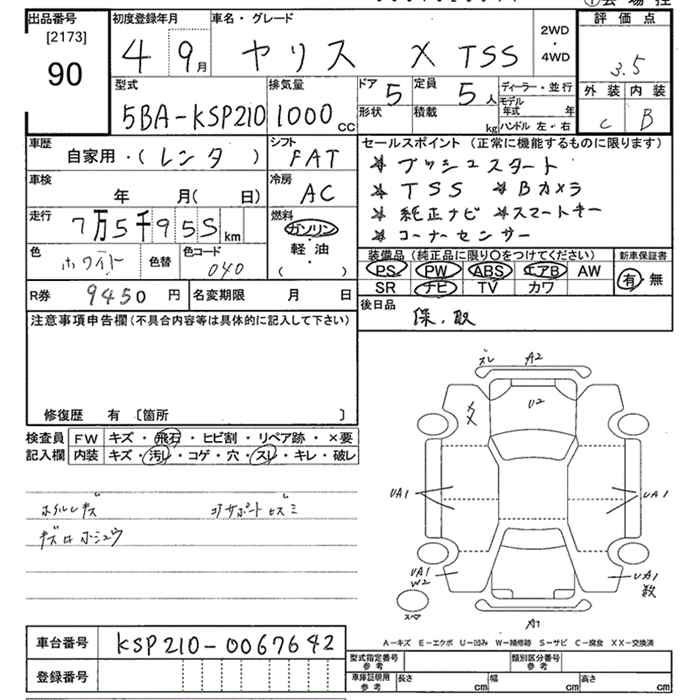 出品番号
[2173]
90
初度登録年月
4 9月
車名・グレード
ヤリス X TSS
2WD
・
4WD
評価点
3.5
外装 内装
C B
型式
5BA-KSP210
排気量
1000 CC
ドア 5
定員 5 人
形状
積載 kg
ディーラー・並行
モデル年式 年
ハンドル 左・右
車歴
自家用・(レンタ)
シフト
FAT
車検
年 月(日)
冷房
AC
走行
7万5千955 km
燃料
ガソリン
・
軽油
( )
色
ホワイト
色替
色コード
040
R券 9450 円
名変期限 月 日
セールスポイント(正常に機能するものに限ります)
* プッシュスタート
* TSS * Bカメラ
* 純正ナビ * スマートキー
* コーナーセンサー
装備品(純正品に限り〇をつけてください)
PS PW ABS エアB AW
SR ナビ TV カワ
新車保証書
有・無
後日品
保.取
注意事項申告欄(不具合内容等は具体的に記入して下さい)
修復歴 有 〔箇所 〕
検査員
記入欄
FW キズ・飛石・ヒビ割・リペア跡・×要
内装 キズ・汚レ・コゲ・穴・スレ・キレ・破レ
ホイルキズ
コアサポートヒズミ
ズレ A2
U2
UA1
UA1
UA1
W2
UA1
数
スペア
A1
A-キズ E-エクボ U-凹み W-補修跡 S-サビ C-腐食 XX-交換済
車台番号 KSP210-0067642
登録番号
型式指定番号
参考
類別区分番号
参考
車庫証明用
参考
長さ cm
幅 cm
高さ cm